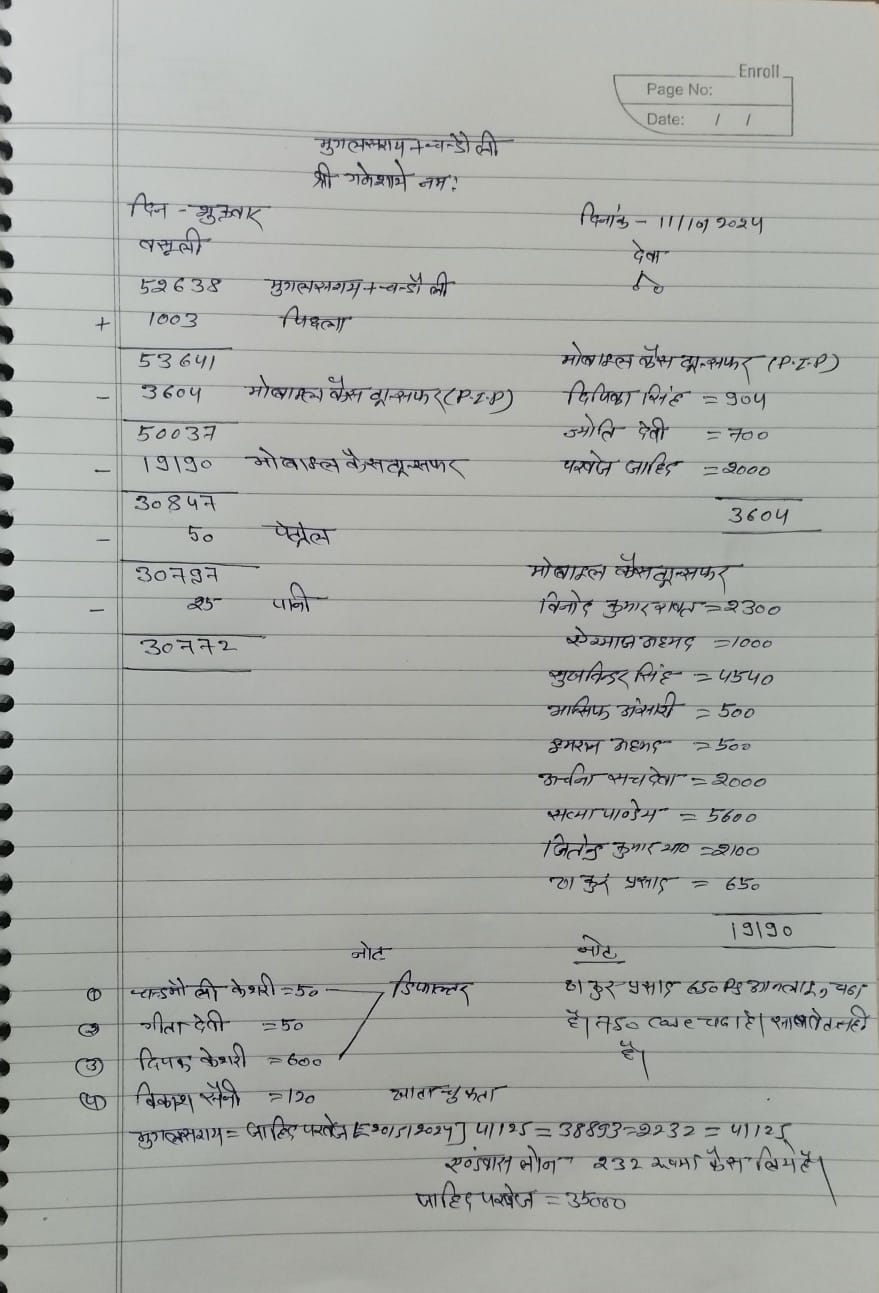 Enroll
Page No:
Date: / /
मुगलसराय + चन्डौली
श्री गनेशाये नम:
दिन - शुक्रवार
दिनांक - 11/10/2024
वसूली
देवा
52638 मुगलसराय + चन्डौली
+ 1003 पिछला
53641
मोबाइल कैस ट्रान्सफर (P.I.P)
- 3604 मोबाइल कैस ट्रान्सफर (P.I.P)
दिपिका सिंह = 904
50037
ज्योति देवी = 700
- 19190 मोबाइल कैस ट्रान्सफर
परवेज जाहिद = 2000
30847
3604
- 50 पेट्रोल
30797
मोबाइल कैस ट्रान्सफर
- 25 पानी
विनोद कुमार = 2300
30772
अहमद = 1000
सुखविन्डर सिंह = 4540
आसिफ अंसारी = 500
इमरान अहमद = 500
अर्चना सचदेवा = 2000
सत्या पाण्डेय = 5600
जितेन्द्र कुमार = 2100
ठाकुर प्रसाद = 650
19190
नोट
नोट
① चन्डमौली केशरी = 50 डिफाल्टर
ठाकुर प्रसाद 650 RS आनलाइन चढा
② गीता देवी = 50
है।
③ दिपक केशरी = 600
है।
④ विकाश सैनी = 120 खाता चुकता
मुगलसराय = जाहिद परवेज [20/5/2024] 41125 = 38893 = 2232 = 41125
लोन - 232 रूपया कैस लिये है।
जाहिद परवेज = 35000